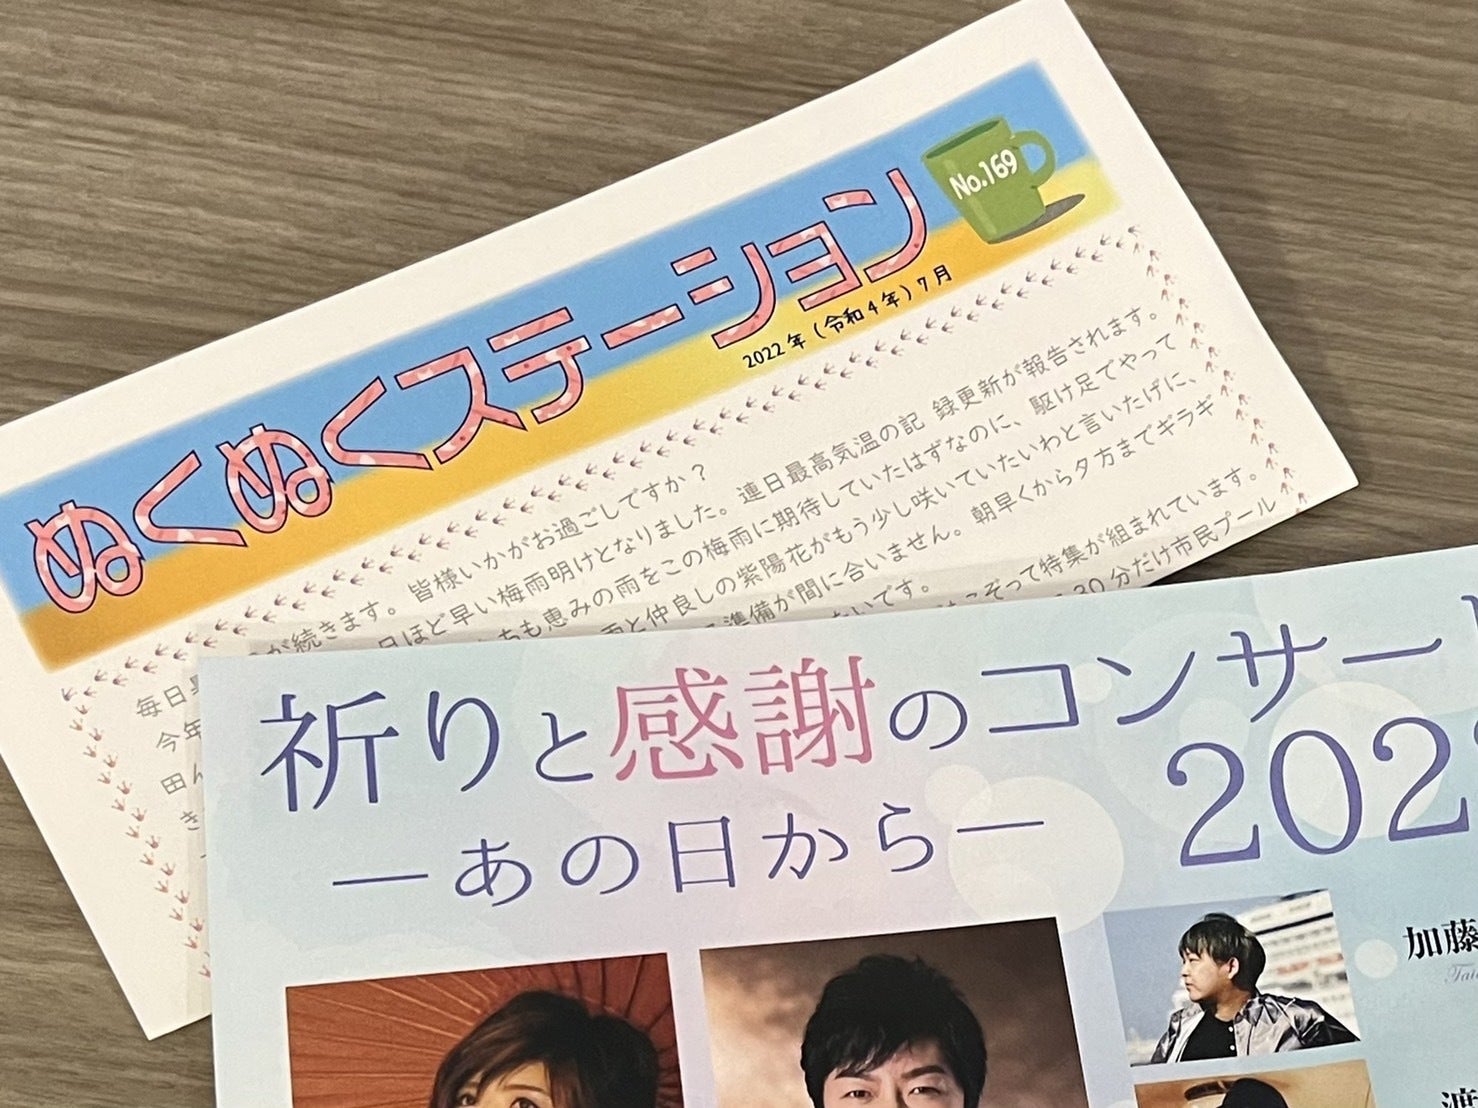 ぬくぬくステーション
No.169
2022年(令和4年)7月
が続きます。皆様いかがお過ごしですか?
日ほど早い梅雨明けとなりました。連日最高気温の記 録更新が報告されます。
ちも恵みの雨をこの梅雨に期待していたはずなのに、駆け足でやって
雨と仲良しの紫陽花がもう少し咲いていたいわと言いたげに、
準備が間に合いません。朝早くから夕方までギラギ
たいです。
こぞって特集が組まれています。
30分だけ市民プール
毎日
今年
田ん
き
祈りと感謝のコンサート
202
―あの日から―
加藤
渡